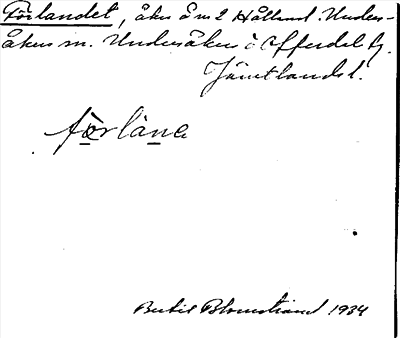 Förlandet, åker å nr 2 Hålland. Unders-
åkers sn. Undersåkers o Offerdal tg.
Jämtlands l.
förlànɛ
Bertil Blomstrand 1934